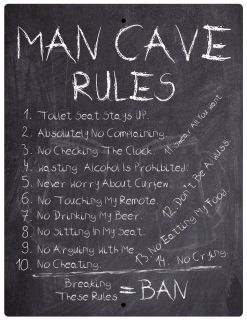 MAN CAVE
RULES
1. Toilet Seat Stays UP.
2. Absolutely No Complaining.
3. No Checking The Clock.
4. Wasting Alcohol Is Prohibited.
5. Never Worry About Curfew.
6. No Touching My Remote.
7. No Drinking My Beer.
8. No Sitting In My Seat.
9. No Arguing With Me.
10. No Cheating.
11. Swear All You Want.
12. Don't Be A Wuss.
13. No Eatting My Food.
14. No Crying.
Breaking
These Rules = BAN